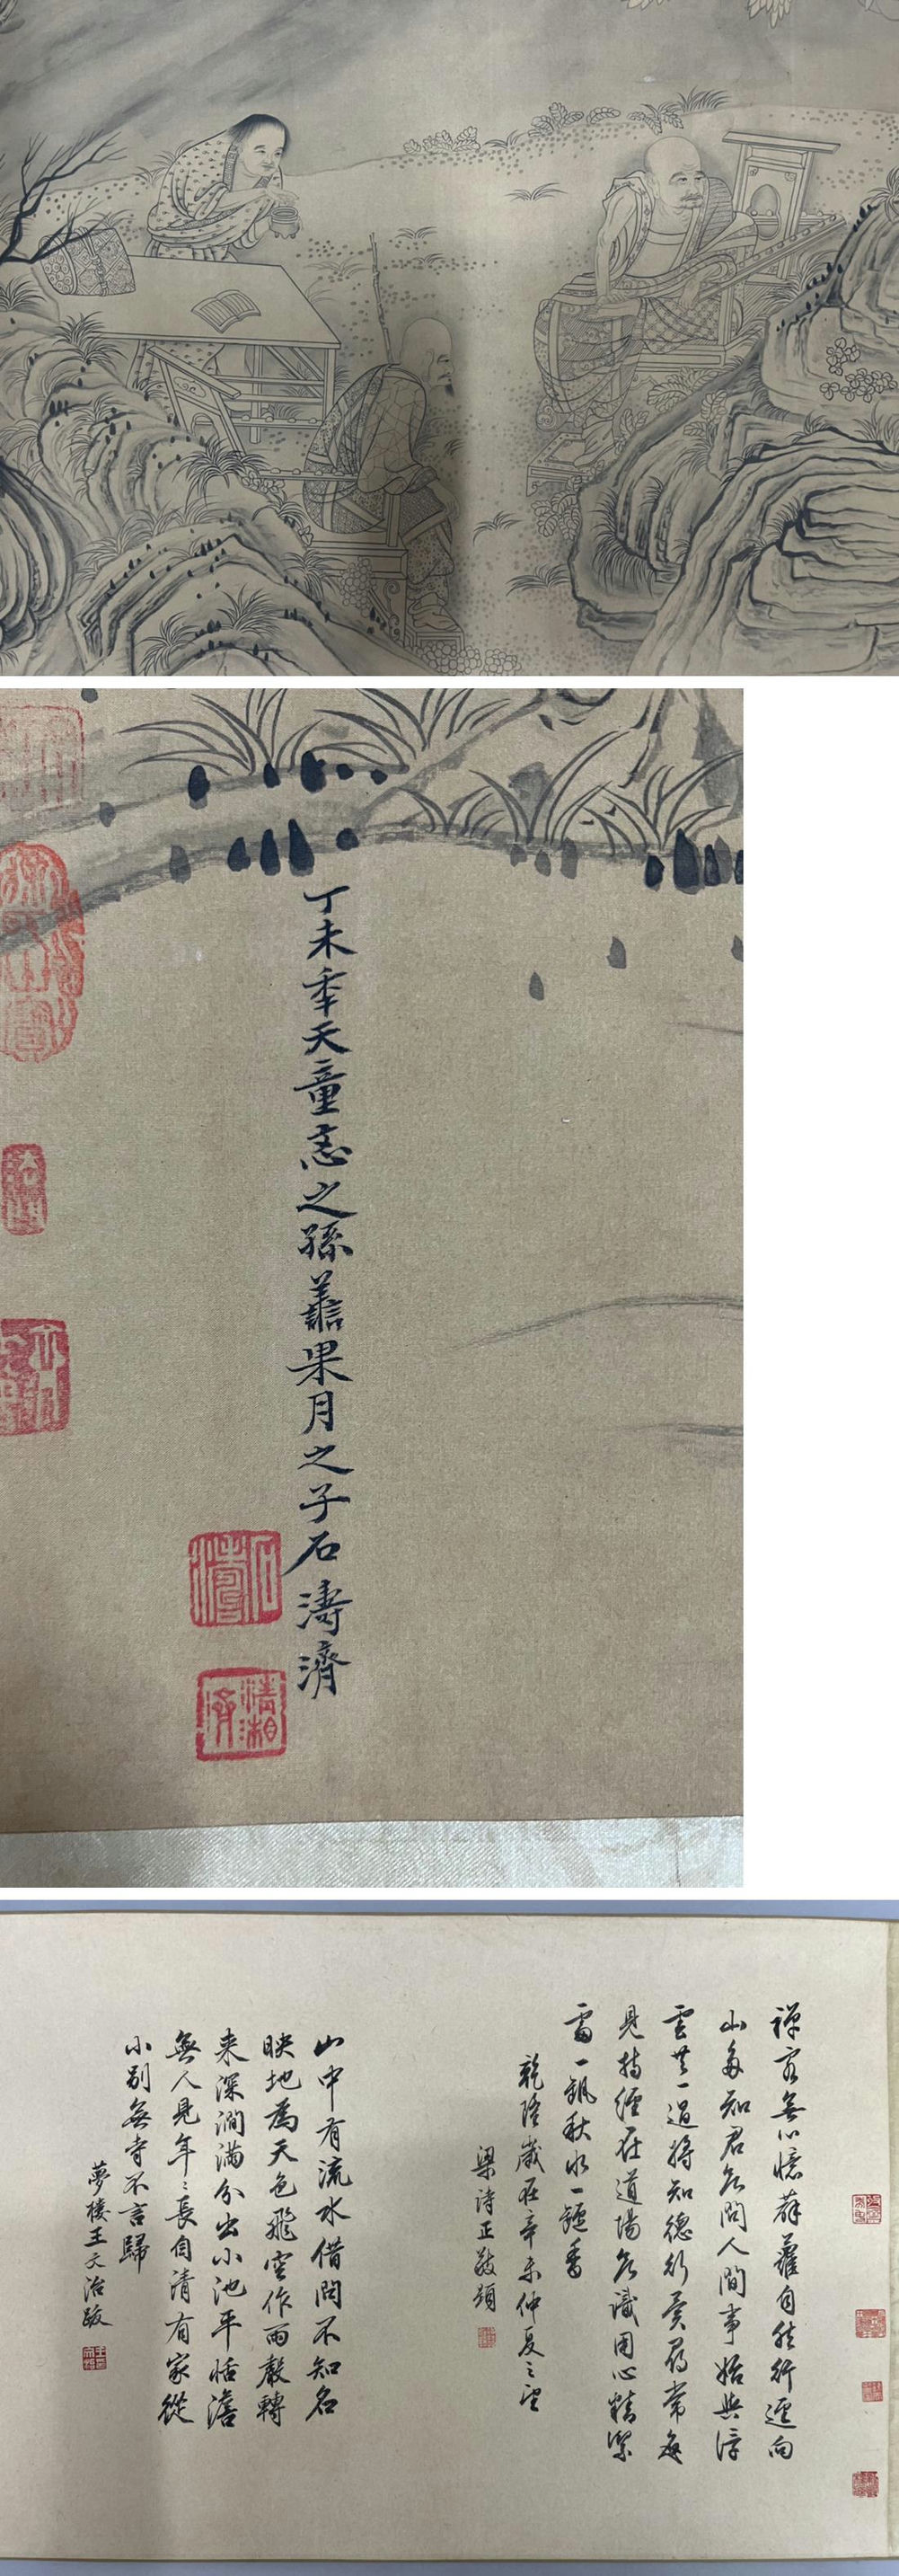 丁未秊天童忞之孫譱果月之子石濤濟
石濤
清湘
禪客無心憶薜蘿自然行逕向
山多知君欲問人間事始與浮
雲共一過將知德行異尋常每
見持經在道場欲識用心精潔
處一瓶秋水一罏香
乾隆歲在辛未仲夏之望
梁詩正敬題
山中有流水借問不知名
映地為天色飛空作雨聲轉
来深澗滿分出小池平恬澹
無人見年々長自清有家從
小別無寺不言歸
夢樓王文治跋